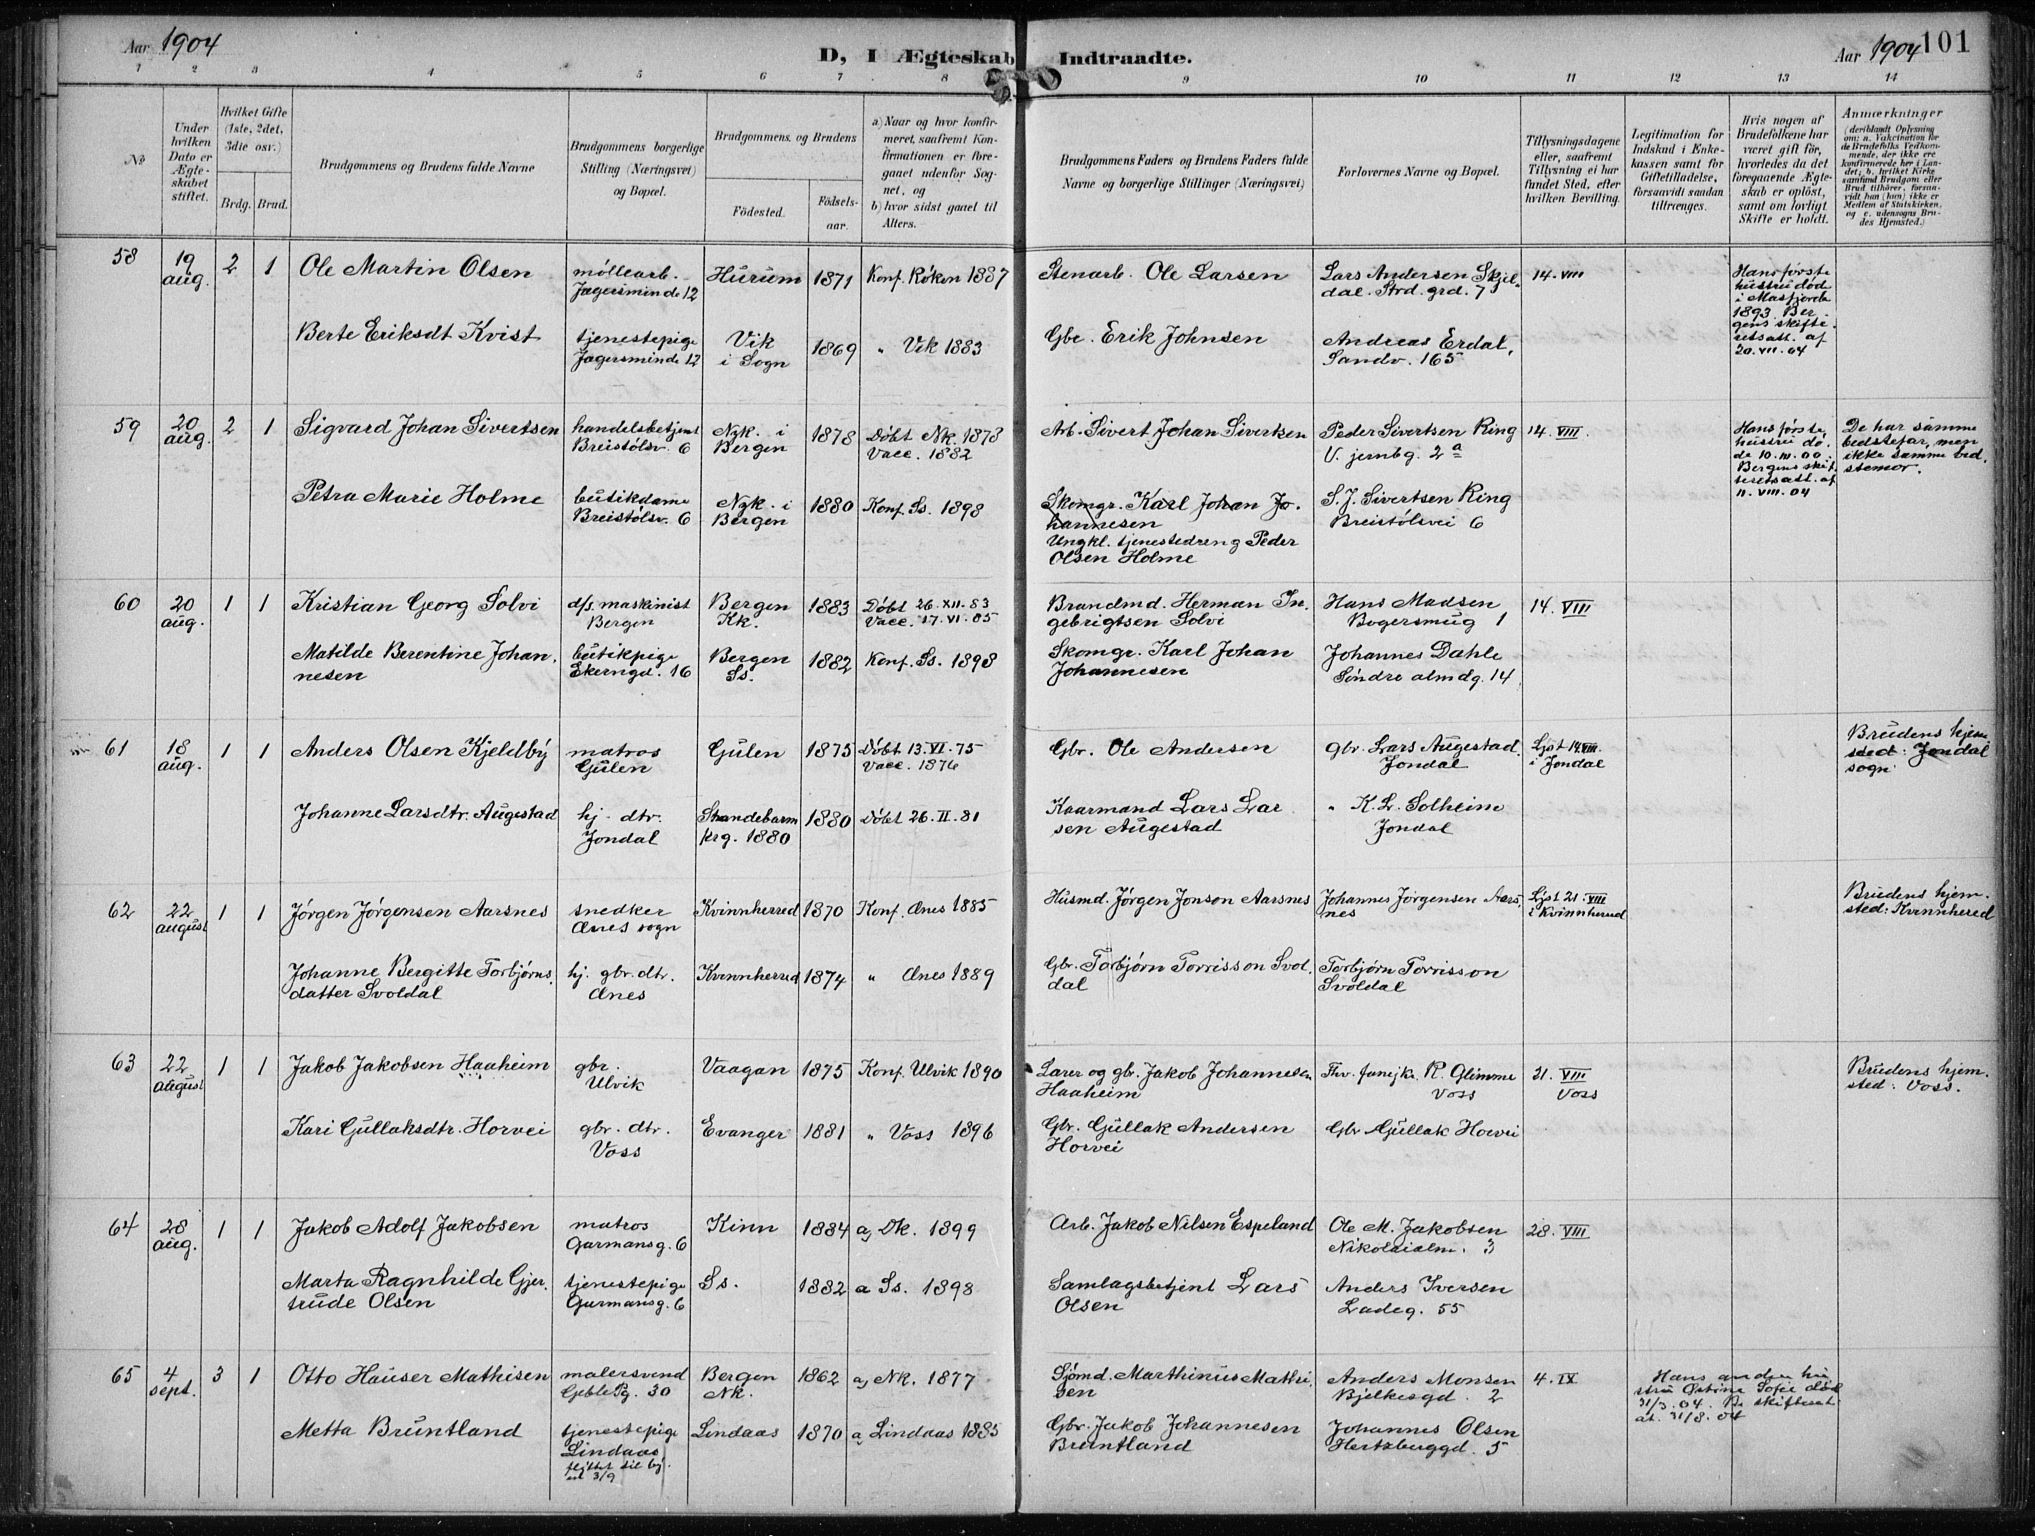 Aar 1904
D, I Ægteskab Indtraadte.
Aar 1904
101
1 2 3 4 5 6 7 8 9 10 11 12 13 14
No
Under hvilken Dato er Ægteskabet stiftet.
Hvilket Gifte (1ste, 2det, 3die osv.)
Brdg. Brud.
Brudgommens og Brudens fulde Navne
Brudgommens borgerlige Stilling (Næringsvei) og Bopæl.
Brudgommens og Brudens
Fødested.
Fødselsaar.
a) Naar og hvor konfirmeret, saafremt Konfirmationen er foregaaet udenfor Sognet, og
b) hvor sidst gaaet til Alters.
Brudgommens Faders og Brudens Faders fulde Navne og borgerlige Stillinger (Næringsvei)
Forlovernes Navne og Bopæl.
Tillysningsdagene eller, saafremt Tillysning ei har fundet Sted, efter hvilken Bevilling.
Legitimation for Indskud i Enkekassen samt for Giftetilladelse, forsaavidt saadan tiltrænges.
Hvis nogen af Brudefolkene har været gift før, hvorledes da det foregaaende Ægteskab er opløst, samt om lovligt Skifte er holdt.
Anmærkninger
(deriblandt Oplysning om: a. Vakcination for de Brudefolks Vedkommende, der ikke ere konfirmerede her i Landet; b. hvilket Kirkesamfund Brudgom eller Brud tilhører, forsaavidt han (hun) ikke er Medlem af Statskirken, og c. udensogns Brudes Hjemsted.)
58 19 aug. 2 1 Ole Martin Olsen møllearb. Jægersminde 12 Hurum 1871 Konf. Røken 1887 Stenarb. Ole Larsen Lars Andersen Skjeldal. Strd. grd. 7 14. VIII
Hans første hustru død i Masfjorden 1893. Bergens skifteretsatt. af 20. VII. 04
Berte Eriksdt Kvist tjenestepige Jægersminde 12 Vik i Sogn 1869 " Vik 1883 Gbr. Erik Johnsen Andreas Erdal, Sandv. 165
59 20 aug. 2 1 Sigvard Johan Sivertsen handelsbetjent Breistølsv. 6 Nyk. i Bergen 1878 Døbt Nk. 1878 Vacc. 1882 Arb. Sivert Johan Sivertsen Peder Sivertsen Ring V. jernbg. 2a 14. VIII.
Hans første hustru døde 10. IV. 00. Bergens skifteretsatt. af 11. VIII. 04
De har samme bedstefar, men ikke samme bedstemor.
Petra Marie Holme butikdame Breistølsv. 6 Nyk. i Bergen 1880 Konf. Ss. 1898 Skomgr. Karl Johan Johannesen
Ungkl. tjenestedreng Peder Olsen Holme S. J. Sivertsen Ring Breistølsvei 6
60 20 aug. 1 1 Kristian Georg Solvi d/s. maskinist Bergen Bergen Kk. 1883 Døbt 26. XII. 83 Vacc. 17. VI. 85 Brandmd. Herman Ingebrigtsen Solvi Hans Madsen Bogersmug 1 14. VIII
Matilde Berentine Johannesen butikpige Ekerngd. 16 Bergen Ss. 1882 Konf. Ss. 1898 Skomgr. Karl Johan Johannesen Johannes Dahle Søndre almdg. 14
61 18 aug. 1 1 Anders Olsen Kjeldby matros Gulen Gulen 1875 Døbt 13. VI. 75 Vacc. 1876 Gbr. Ole Andersen gbr. Lars Augestad. Jondal Lyst 14. VIII. i Jondal Brudens hjemsted: Jondal sogn
Johanne Larsdtr. Augestad hj. dtr. Jondal Strandebarm prg. 1880 1880 Døbt 26. II. 81 Kaarmand Lars Larsen Augestad " K. L. Solheim Jondal
62 22 august 1 1 Jørgen Jørgensen Aarsnes snedker Ænes sogn Kvinnherred 1870 Konf. Ænes 1885 Husmd. Jørgen Jonson Aarsnes Johannes Jørgensen Aarsnes Lyst 21. VIII i Kvinnherred Brudens hjemsted: Kvinnhered
Johanne Bergitte Torbjørnsdatter Svoldal hj. gbr. dtr. Ænes Kvinnherred 1874 " Ænes 1889 Gbr. Torbjørn Torrisson Svoldal Torbjørn Torrisson Svoldal
63 22 august 1 1 Jakob Jakobsen Haaheim gbr. Ulvik Vaagan 1875 Konf. Ulvik 1890 Lærer og gbr. Jakob Johannesen Haaheim R. Glimme Voss 21. VIII Voss Brudens hjemsted: Voss.
Kari Gullaksdtr. Horvei gbr. dtr. Voss Evanger 1881 " Voss 1896 Gbr. Gullak Andersen Horvei Gbr Gullak Horvei
64 28 aug. 1 1 Jakob Adolf Jakobsen matros Garmansg. 6 Kinn 1884 a) Dk. 1899 Arb. Jakob Nilsen Espeland Ole M. Jakobsen Nikolaialm. 3 28. VIII
Marta Ragnhilde Gjertrude Olsen tjenestepige Garmansg. 6 Ss. 1882 a Ss. 1898 Samlagsbetjent Lars Olsen Anders Iversen Ladeg. 55
65 4 sept. 3 1 Otto Hauser Mathisen malersvend Geblesg. 30 Bergen Nk. 1862 a) Nk. 1877 Sjømd. Marthinus Mathisen Anders Monsen Bjelkesgd. 2 4. IX
Hans anden hustru Østine Sofie død 31/3. 04. B. skifteratt. 31/8. 04
Metta Bruntland tjenestepige Lindaas flyttet til by 3/9 Lindaas 1870 a) Lindaas 1885 Gbr. Jakob Johannesen Bruntland Johannes Olsen Hertzbuggd. 5